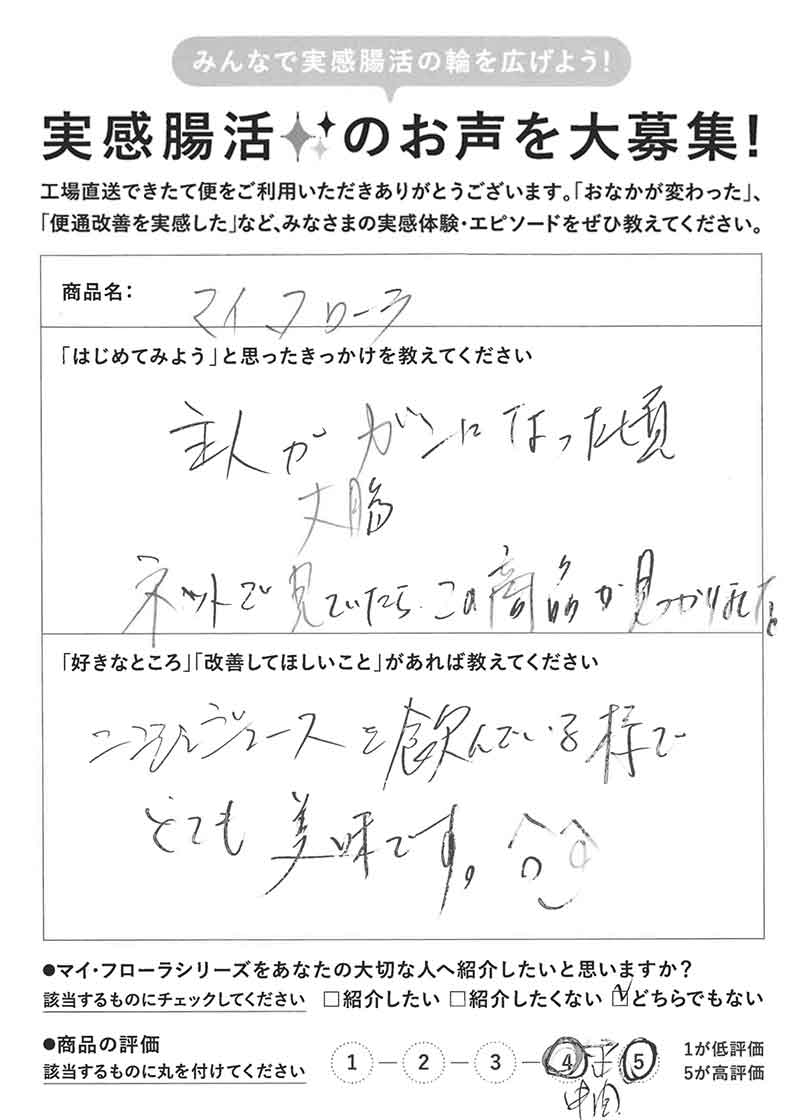 みんなで実感腸活の輪を広げよう!
実感腸活のお声を大募集!
工場直送できたて便をご利用いただきありがとうございます。「おなかが変わった」、
「便通改善を実感した」など、みなさまの実感体験・エピソードをぜひ教えてください。
商品名: マイフローラ
「はじめてみよう」と思ったきっかけを教えてください
主人がガンになった頃
大腸
ネットで見ていたら、この商品が見つかりました
「好きなところ」「改善してほしいこと」があれば教えてください
ジュースを飲んでいる様で
とても美味です。
●マイ・フローラシリーズをあなたの大切な人へ紹介したいと思いますか?
該当するものにチェックしてください □紹介したい □紹介したくない ☑どちらでもない
●商品の評価
該当するものに丸を付けてください
1 2 3 4 5
中間
1が低評価
5が高評価